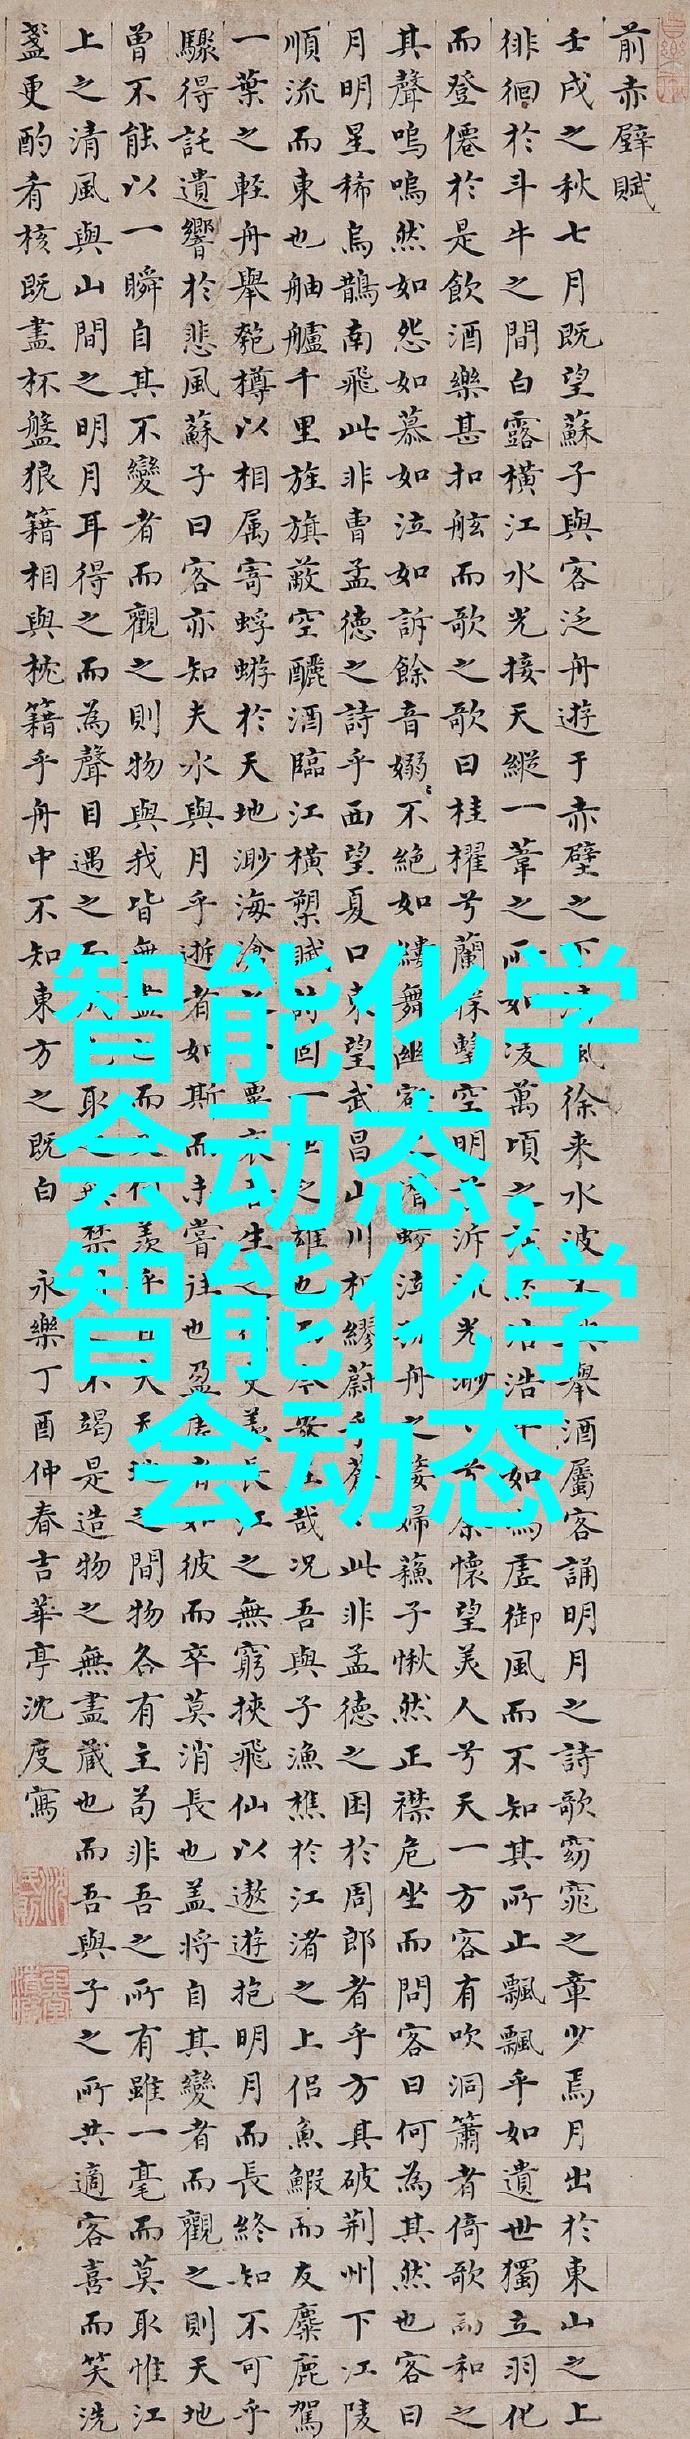 前赤壁賦
壬戌之秋七月既望蘇子與客泛舟遊于赤壁之下清風徐来水波不興舉酒屬客誦明月之詩歌窈窕之章少焉月出於東山之上
徘徊於斗牛之間白露橫江水光接天縱一葦之所如凌萬頃之茫然浩浩乎如馮虛御風而不知其所止飄飄乎如遺世獨立羽化
而登僊於是飲酒樂甚扣舷而歌之歌曰桂櫂兮蘭槳擊空明兮泝流光渺渺兮余懷望美人兮天一方客有吹洞簫者倚歌而和之
其聲嗚嗚然如怨如慕如泣如訴餘音嫋々不絕如縷舞幽壑之潛蛟泣孤舟之嫠婦蘓子愀然正襟危坐而問客曰何為其然也客曰
月明星稀烏鵲南飛此非曹孟德之詩乎西望夏口東望武昌山川相繆蔚乎蒼此非孟德之困於周郎者乎方其破荆州下江陵
順流而東也舳艫千里旌旗蔽空釃酒臨江橫槊賦詩固一世之雄也而今安在哉况吾與子漁樵於江渚之上侣魚鰕而友麋鹿駕
一葉之輕舟舉匏樽以相属寄蜉蝣於天地渺海滄一粟哀吾生之須臾羨長江之無窮挾飛仙以遨遊抱明月而長終知不可乎
驟得託遺響於悲風蘇子曰客亦知夫水與月乎逝者如斯而未嘗往也盈虛者如彼而卒莫消長也盖將自其變者而觀之則天地
曾不能以一瞬自其不變者而觀之則物與我皆無盡也而又何羨乎且夫天地之間物各有主苟非吾之所有雖一毫而莫取惟江
上之清風與山間之明月耳得之而為聲目遇之而成色取之無禁用之不竭是造物之無盡藏也而吾與子之所共適客喜而笑洗
盞更酌肴核既盡杯盤狼籍相與枕籍乎舟中不知東方之既白 永樂丁酉仲春吉華亭沈度寫
智能化学
会动态,
智能化学
会动态